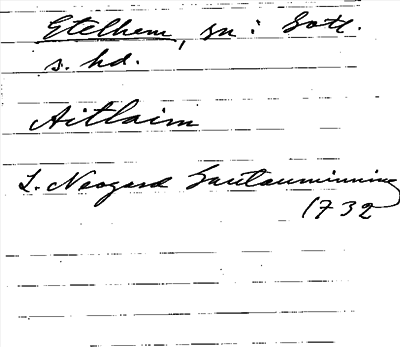 Etelhem, sn: Gotl.
s. hd.
Aitlaim
L. Neogard Gautauminning
1732